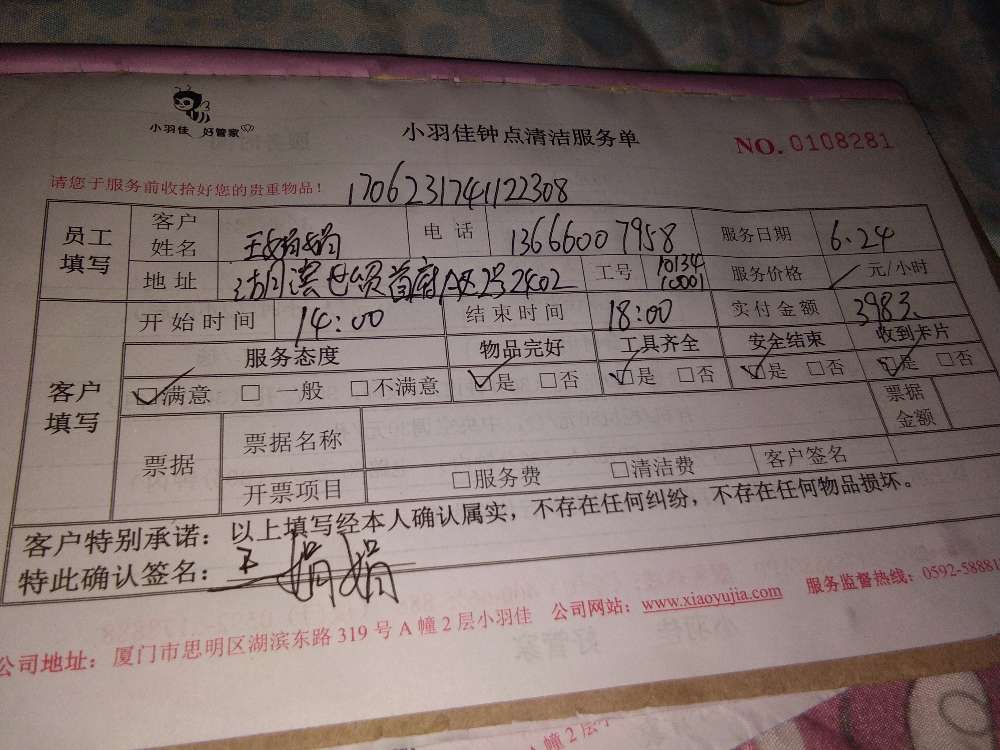 小羽佳 好管家
小羽佳钟点清洁服务单
NO. 0108281
请您于服务前收拾好您的贵重物品！
1706231741122308
员工填写 客户姓名 王娟娟 电话 13666007958 服务日期 6.24
地址 2号2402 工号 10134 10001 服务价格 元/小时
开始时间 14:00 结束时间 18:00 实付金额 3983
客户填写 服务态度 物品完好 工具齐全 安全结束 收到卡片
☑满意 □一般 □不满意 ☑是 □否 ☑是 □否 ☑是 □否 ☑是 □否
票据 票据名称 票据金额
开票项目 □服务费 □清洁费 客户签名
客户特别承诺：以上填写经本人确认属实，不存在任何纠纷，不存在任何物品损坏。
特此确认签名：王娟娟
公司地址：厦门市思明区湖滨东路 319 号 A 幢 2 层小羽佳 公司网站：www.xiaoyujia.com 服务监督热线：0592-58881
A 幢 2 层小